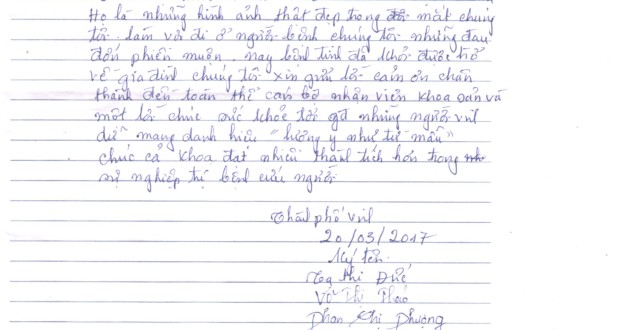 Họ là những hình ảnh thật đẹp trong đôi mắt chúng
tôi. làm vơi đi ở người bệnh chúng tôi những đau
đớn phiền muộn. nay bệnh tình đã khỏi được trở
về gia đình chúng tôi xin gửi lời cảm ơn chân
thành đến toàn thể cán bộ nhận viên khoa sản và
một lời chúc sức khỏe tới những người
mang danh hiệu "lương y như từ mẫu"
chúc cả khoa đạt nhiều thành tích hơn trong
sự nghiệp trị bệnh cứu người.
Thành phố
20/03/2017
Ký tên
Tạ thị Đức
Võ Thị Thảo
Phan Thị Phượng